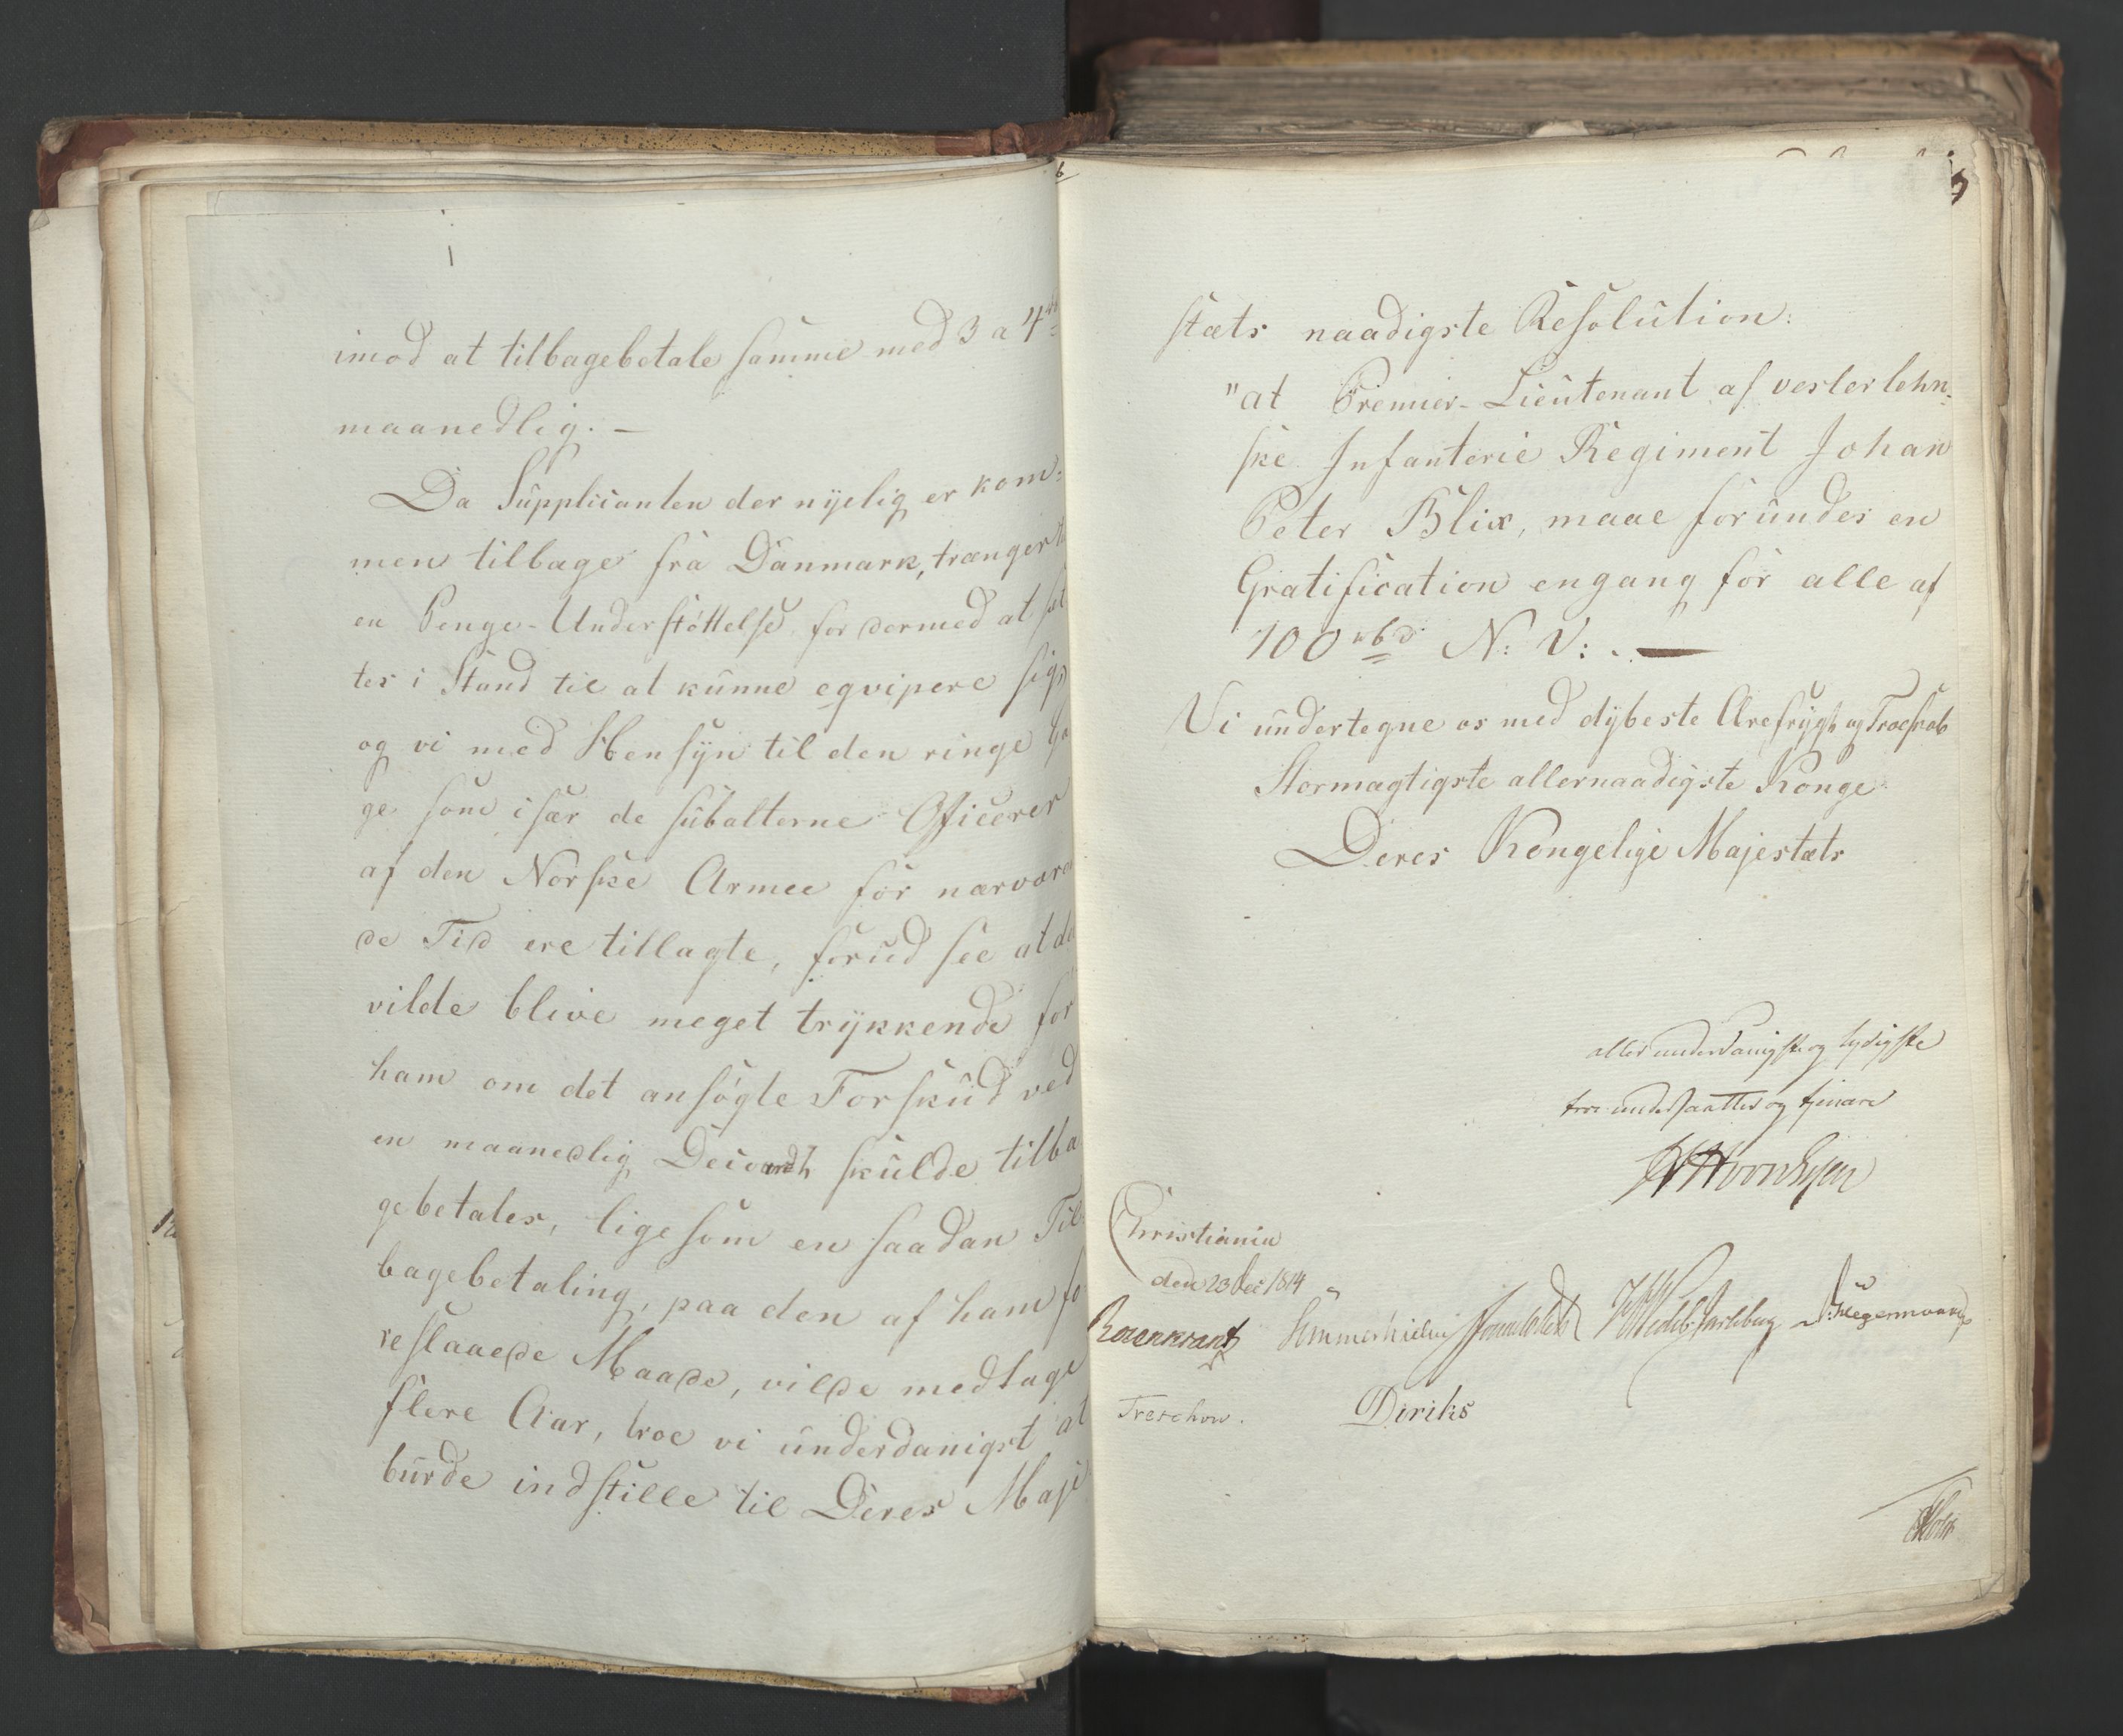 imod at tilbagebetale samme med 3 a 4
maanedlig. —
Da Supplicanten der nÿelig er kom-
men tilbage fra Danmark, trænger
en Penge-Understøttelse for dermed at sæt
tes i Stand til at kunne eqvipere sig,
og vi med Hensÿn til den ringe Ga
ge som især de subalterne Officerer
af den Norske Armee for nærværen
de Tid ere tillagte, forud see at de
vilde blive meget trÿkkende for
ham om det ansøgte Forskud ved
en maanedlig skulde tilba
gebetales, ligesom en saadan Til-
bagebetaling, paa den af ham fo
reslaaede Maade, vilde medtage
flere Aar, troe vi underdanigst at
burde indstille til Deres Maje
6
7
stæts naadigste Resolution:
"at Premier-Lieutenant af vesterlehn-
ske Infanterie Regiment Johan
Peter Blix, maae forundes en
Gratification engang for alle af
100 rbd N: V: . —
Vi undertegne os med dÿbeste Ærefrÿgt og Troeskab
Stormægtigste allernaadigste Konge
Deres Kongelige Majestæts
allerunderdanigste og lydigste
troe undersaatter og tjenere
Christiania
den 23 Dec 1814
Rosenkrantz Sommerhielm Wedel-Jarlsberg Hegermann
Treschow. Diriks